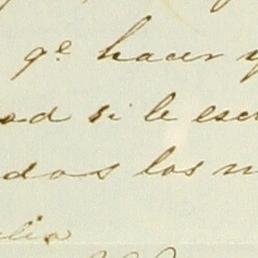 qe hacer y
ad si le esc
dos los n
lio